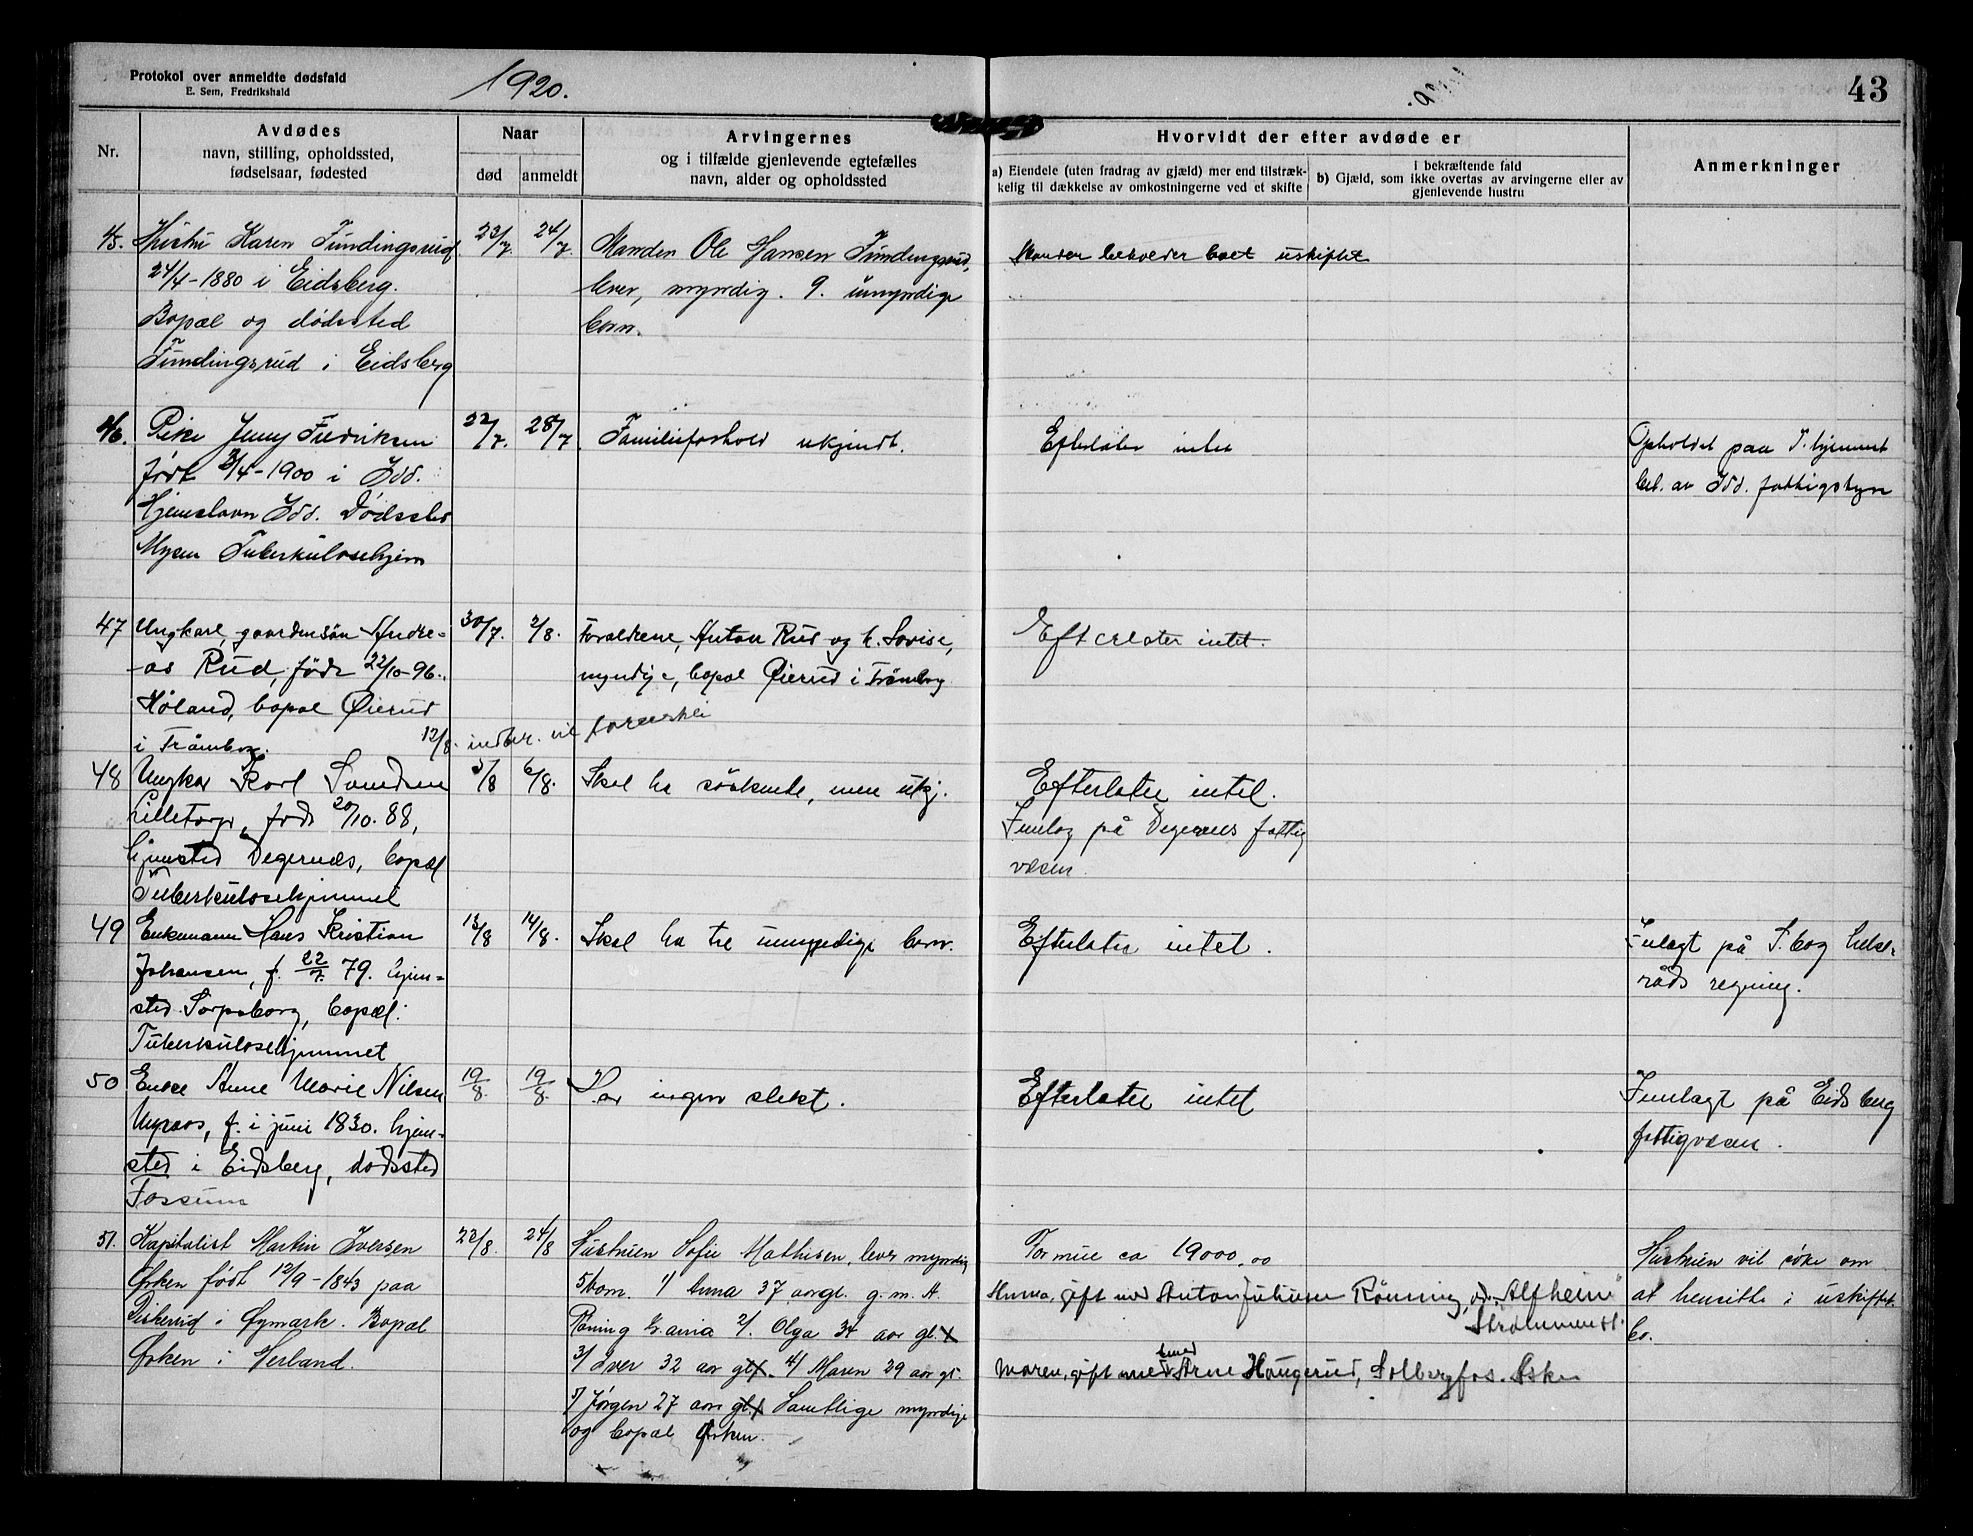 Protokol over anmeldte dødsfald
E. Sem, Fredrikshald
1920.
43
Nr.
Avdødes
navn, stilling, opholdssted,
fødselsaar, fødested
Naar
død
anmeldt
Arvingernes
og i tilfælde gjenlevende egtefælles
navn, alder og opholdssted
Hvorvidt der efter avdøde er
a) Eiendele (uten fradrag av gjæld) mer end tilstræk-
kelig til dækkelse av omkostningerne ved et skifte
i bekræftende fald
b) Gjæld, som ikke overtas av arvingerne eller av
gjenlevende hustru
Anmerkninger
45. Hustru Karen Fundingsrud
24/4-1880 i Eidsberg.
Bopæl og dødssted
Fundingsrud i Eidsberg
23/7. 24/7.
Manden Ole Hansen Fundingsrud,
lever, myndig. 9. umyndige
børn.
Manden beholder boet uskiftet
46. Pike Jenny Fredriksen
født 3/4-1900 i Idd.
Hjemstavn Idd. Dødssted
Mysen Tuberkulosehjem
22/7. 28/7.
Familieforhold ukjendt.
Efterlater intet
Opholdet paa T. hjemmet
bet. av Idd. fattigstyre
47 Ungkarl, gaardersøn Andre-
as Rud, født 22/10-96.
Høland, bopæl Øierud
i Trømborg.
30/7. 2/8.
Forældrene, Anton Rud og h. Lovise,
myndige, bopæl Øierud i Trømborg
12/8. indber. til
Efterlater intet.
48 Ungkar Karl Sandem
Lilletorp, født 20/10. 88,
hjemsted Degernæs, bopæl
Tuberkulosehjemmet
5/8 6/8.
Skal ha søskende, men ukj.
Efterlater intet.
Innlag på Degernes fattig
væsen
49 Enkemann Hans Kristian
Johansen, f. 22/7. 79. hjem-
sted Sarpsborg, bopæl:
Tuberkulosehjemmet
13/8 14/8.
Skal ha tre umyndige barn.
Efterlater intet.
Innlagt på S.borg helse-
råds regning.
50 Enke Anne Marie Nilsen
Myraas, f. i juni 1830. hjem-
sted i Eidsberg, dødssted
Fossum
19/8. 19/8.
Har ingen slekt.
Efterlater intet
Innlagt på Eidsberg
fattigvæsen.
51. Kapitalist Martin Iversen
Ørken født 12/9-1843 paa
Diskerud i Øymark. Bopæl
Ørken i Herland.
22/8. 24/8
Hustruen Sofie Mathisen, lever myndig
5 barn. 1/ Anna 37 aar gl. g. m. A.
Røning 2/. Olga 34 aar gl.
3/ Iver 32 aar gl. 4/ Maren 29 aar gl.
5/ Jørgen 27 aar gl. Samtlige myndige
og bopæl Ørken.
Formue ca 19000,00
Anna, gift med Anton Juliusen Rønning, adr. "Alfheim"
Strømmen st.
med
Maren, gift med Arne Haugerud, Solbergfos. Askim
Hustruen vil søke om
at hensitte i uskiftet
bo.